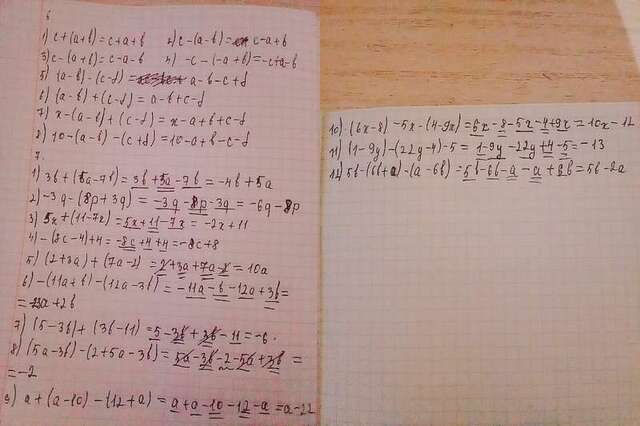 6
1) c+(a+b)=c+a+b 2) c-(a-b)= c-a+b
3) c-(a+b)=c-a-b 4) -c-(-a+b)=-c+a-b
5) (a-b)-(c-d)= a-b-c+d
6) (a-b)+(c-d)=a-b+c-d
7) x-(a-b)+(c-d)=x-a+b+c-d
8) 10-(a-b)-(c+d)=10-a+b-c-d
7.
1) 3b+(5a-7b)=3b+5a-7b=-4b+5a
2) -3q-(8p+3q)=-3q-8p-3q=-6q-8p
3) 5x+(11-7x)=5x+11-7x=-2x+11
4) -(8c-4)+4=-8c+4+4=-8c+8
5) (2+3a)+(7a-2)=2+3a+7a-2=10a
6) -(11a+b)-(12a-3b)=-11a-b-12a+3b=
=-23a+2b
7) (5-3b)+(3b-11)=5-3b+3b-11=-6.
8) (5a-3b)-(2+5a-3b)=5a-3b-2-5a+3b=
=-2
9) a+(a-10)-(12+a)=a+a-10-12-a=a-22
10) (6x-8)-5x-(4-9x)=6x-8-5x-4+9x=10x-12
11) (1-9y)-(22y-4)-5=1-9y-22y+4-5=-13
12) 5b-(6b+a)-(a-6b)=5b-6b-a-a+6b=5b-2a